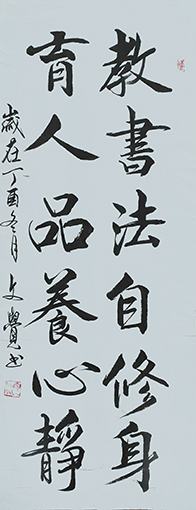 教書法自修身
育人品養心靜
歲在丁酉冬月文覺書